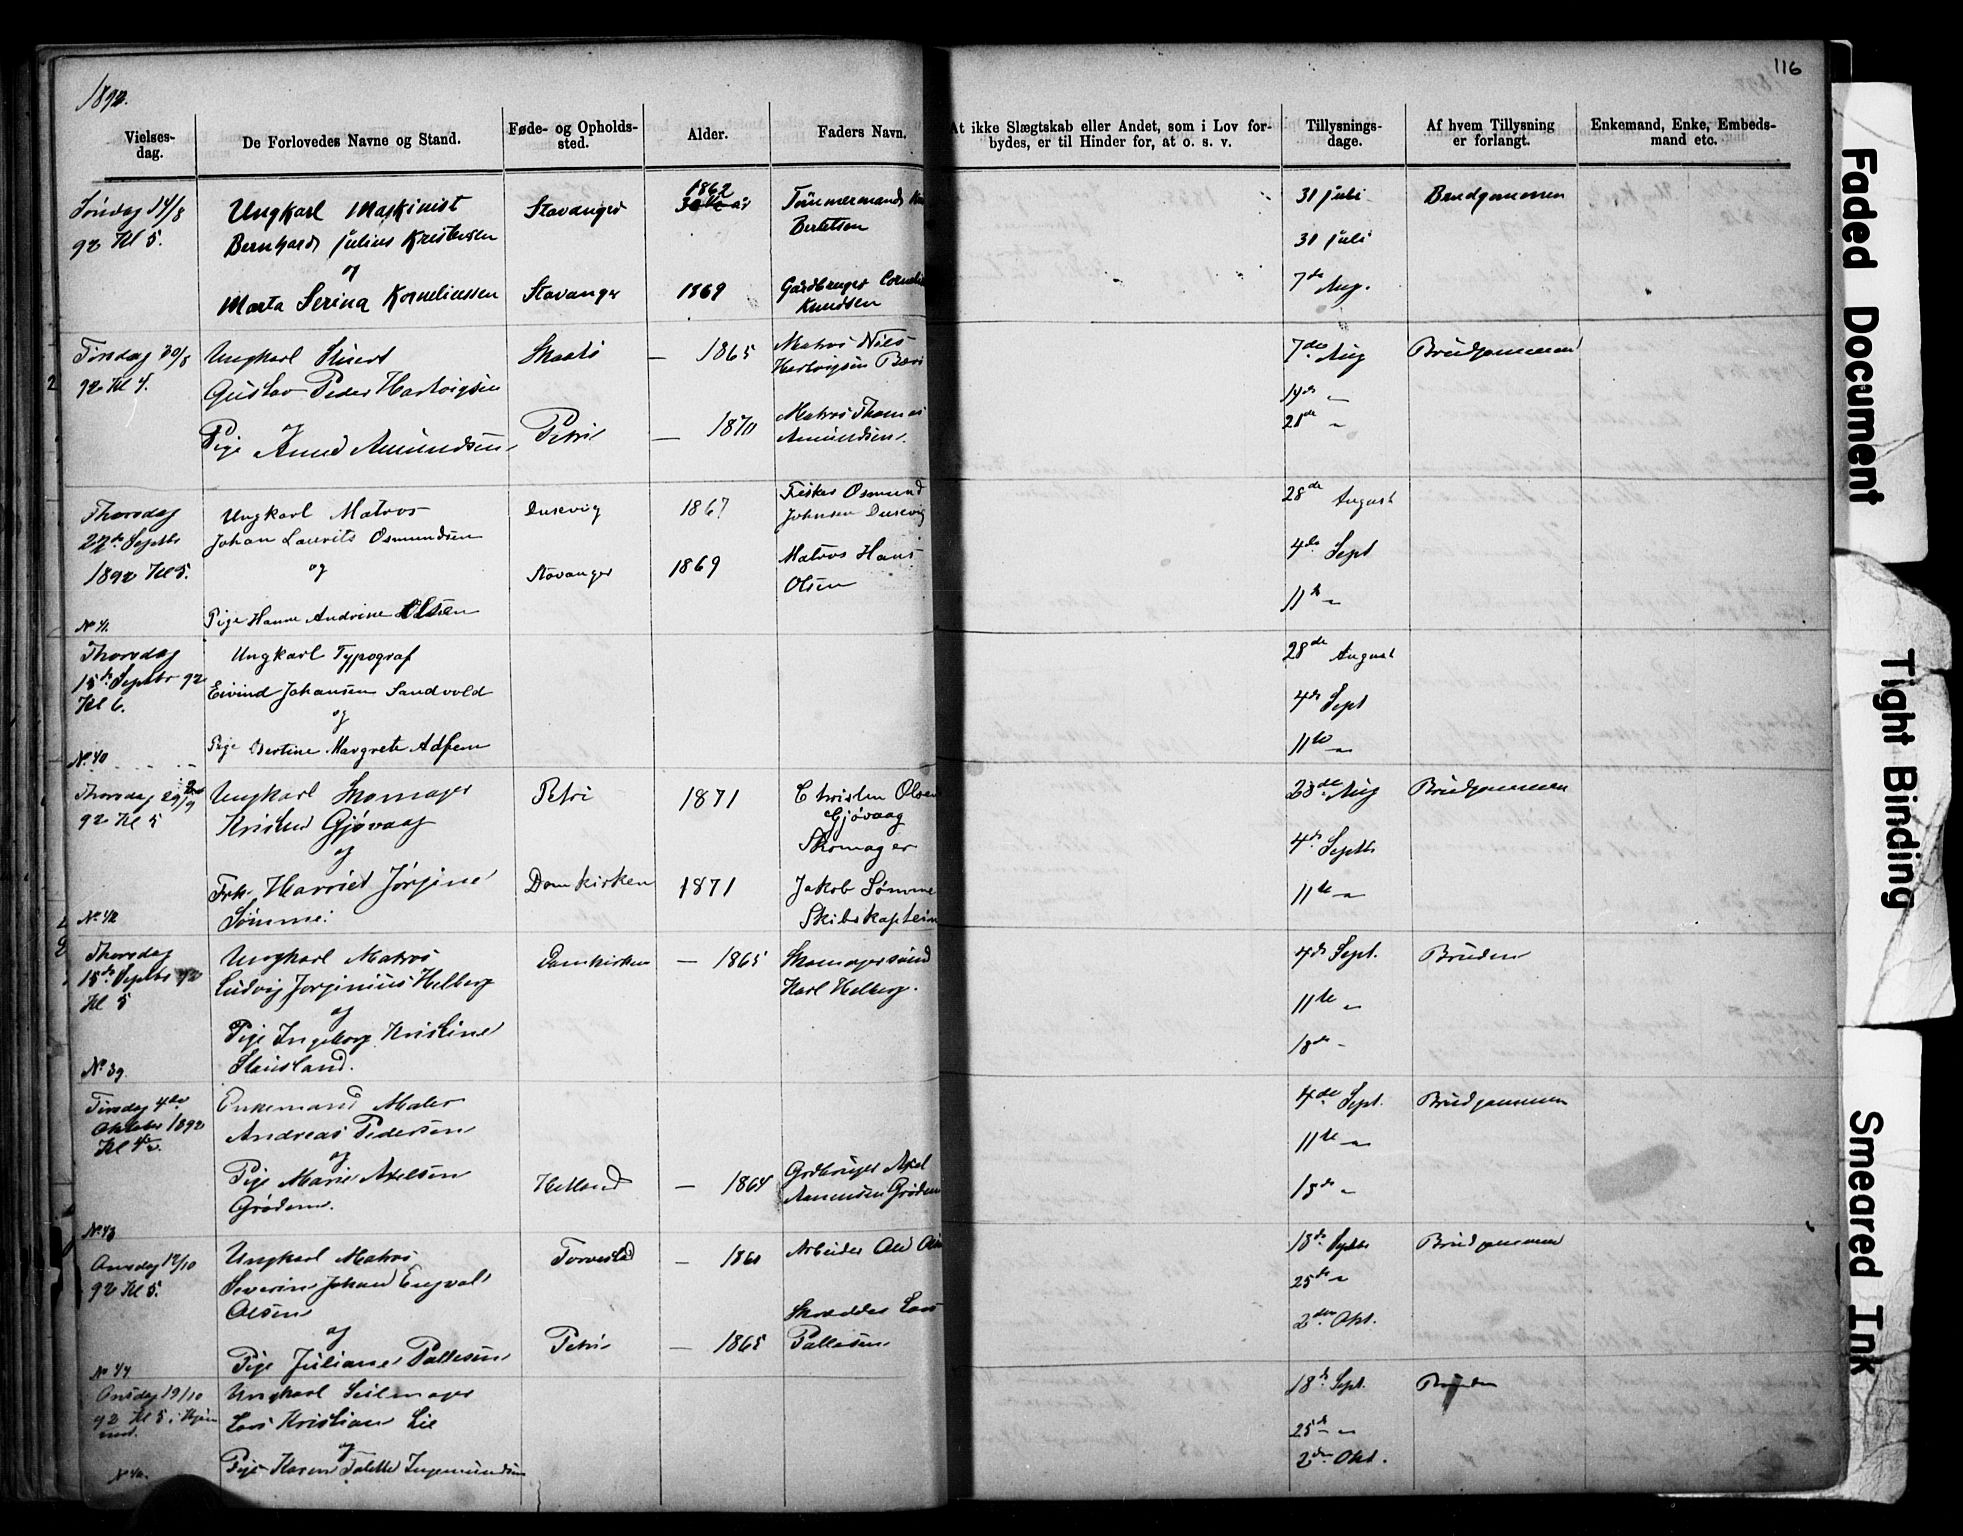 1892.
116
Vielses-
dag.
De Forlovedes Navne og Stand.
Føde- og Opholds-
sted.
Alder.
Faders Navn.
At ikke Slægtskab eller Andet, som i Lov for-
bydes, er til Hinder for, at o. s. v.
Tillysnings-
dage.
Af hvem Tillysning
er forlangt.
Enkemand, Enke, Embeds-
mand etc.
Søndag 14/8
92 Kl 5.
Ungkarl Maskinist
Bernhard Julius Kristensen
og
Marta Serina Korneliussen
Stavanger
Stavanger
1862
1869
Tømmermand
Bertelsen
Gardbruger
Knudsen
31 juli
31 juli
7de Aug.
Brudgommen
Tirsdag 30/8
92 Kl 4.
Ungkarl
Gustav Peder Hartvigsen
og
Pige Anne Amundsen
Petri
— 1865
— 1870
Matros Nils
Hartvigsen
Matros Thomas
Amundsen.
7de Aug
14de „
21de „
Brudgommen
Thorsdag
22de Septbr
1892 Kl 5.
No 41.
Ungkarl Matros
Johan Laurits Osmundsen
og
Pige Hanne Andrine Olsen
Dusevig
Stavanger
1867
1869
Fisker Osmund
Johnsen Dusevig
Matros Hans
Olsen
28de August
4de Sept
11te „
Thorsdag
15de Septbr 92
Kl 6.
No 40
Ungkarl Typograf
Eivind Johansen Sandvold
og
Pige Bertine Margrete
28de August
4de Sept
11te „
Thorsdag 29/9
92 Kl 5
No 42
Ungkarl Skomager
Kristen Gjøvaag
og
Frk. Harriet Jørgine
Sømme.
Petri
Domkirken
1871
1871
Christen Olsen
Gjøvaag
Skomager
Jakob Sømme
Skibskaptein
28de Aug
4de Septbr
11te „
Brudgommen
Thorsdag
15de Septbr 92
Kl 5
No 39.
Ungkarl Matros
Ludvig Jørginius Helberg
og
Pige Ingeborg Kristine
Stausland.
Domkirken
— 1865
Skomagersvend
Karl Helberg.
4de Sept.
11te „
18de „
Bruden
Tirsdag 4de
Oktober 1892
No 43
Enkemand Maler
Andreas Pedersen
og
Pige Marie Axelsen
Grødem.
Hetland
— 1864
Gardbruger Axel
Grødem
4de Sept.
11te „
18de „
Brudgommen
Onsdag 12/10
92 Kl 5.
No 44
Ungkarl Matros
Severin Johan Engvald
Olsen
og
Pige Juliane Pallesen
Torvestad
Petri
— 1860
— 1865
Arbeider Ole
Skrædder Lars
Pallesen
18de Septbr
25de „
2den Okt.
Brudgommen
Onsdag 19/10
92 Kl 5 i
Ungkarl Seilmager
Lars Kristian Lie
og
Pige Karen Tolette Ingemundsen
18de Sept.
25de „
2den Okt.
Bruden
Faded Document
Tight Binding
Smeared Ink